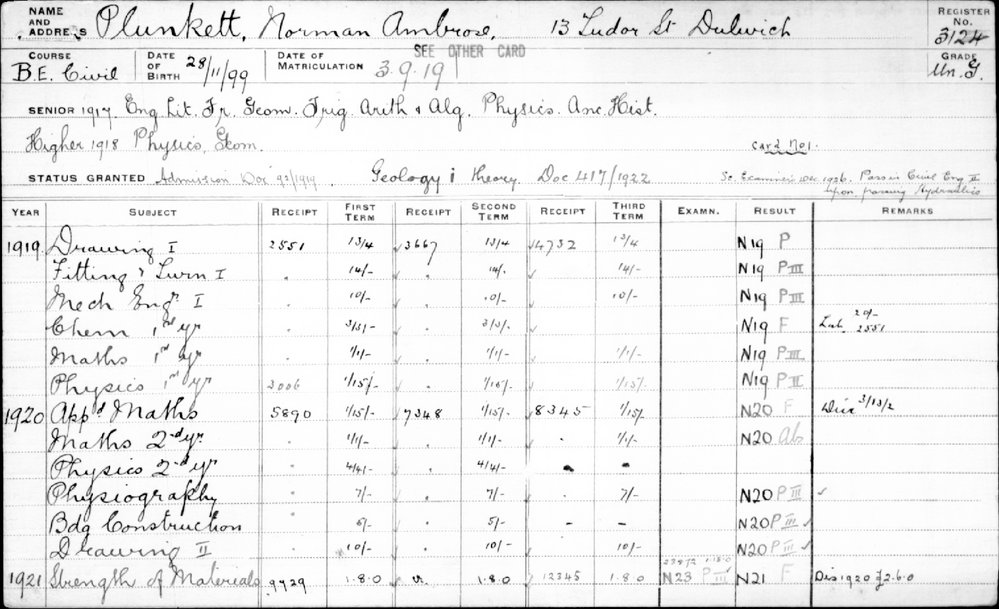 NAME AND ADDRESS Plunkett, Norman Ambrose, 13 Tudor St Dulwich REGISTER No. 3124
COURSE B.E. Civil DATE OF BIRTH 28/11/99 DATE OF MATRICULATION SEE OTHER CARD 3.9.19 GRADE Un. G.
SENIOR 1917. Eng. Lit. Fr. Geom. Trig. Arith & Alg. Physics. Anc. Hist.
Higher 1918 Physics, Geom. Card No 1.
STATUS GRANTED Admission Doc 92/1919 Geology i theory. Doc 417/1922 Sc. Examiner Dec. 1926. Pass in Civil Eng II
upon passing Hydraulics
YEAR SUBJECT RECEIPT FIRST TERM RECEIPT SECOND TERM RECEIPT THIRD TERM EXAMN. RESULT REMARKS
1919 Drawing I 2551 13/4 3667 13/4 4732 13/4 N19 P
Fitting & Turn I . 14/- 14/- 14/- N19 P III
Mech Engr. I . 10/- 10/- 10/- N19 P III
Chem 1st yr . 3/3/- 3/3/- N19 F Lab. 20/- 2551
Maths 1st yr . 1/1/- 1/1/- 1/1/- N19 P III
Physics 1st yr 2006 1/15/- 1/15/- 1/15/- N19 P II
1920 App'd Maths 5890 1/15/- 7348 1/15/- 8345 1/15/- N20 F Dis 3/13/2
Maths 2nd yr. . 1/1/- 1/1/- 1/1/- N20 Ab
Physics 2nd yr . 4/4/- 4/4/- - -
Physiography . 7/- 7/- 7/- N20 P III ✓
Bdg Construction . 5/- 5/- - - N20 P III ✓
Drawing II . 10/- 10/- 10/- N20 P III ✓
1921 Strength of Materials 9729 1.8.0 1.8.0 12345 1.8.0 23872 1.15.0 N23 P III N21 F Dis 1920 £2.6.0